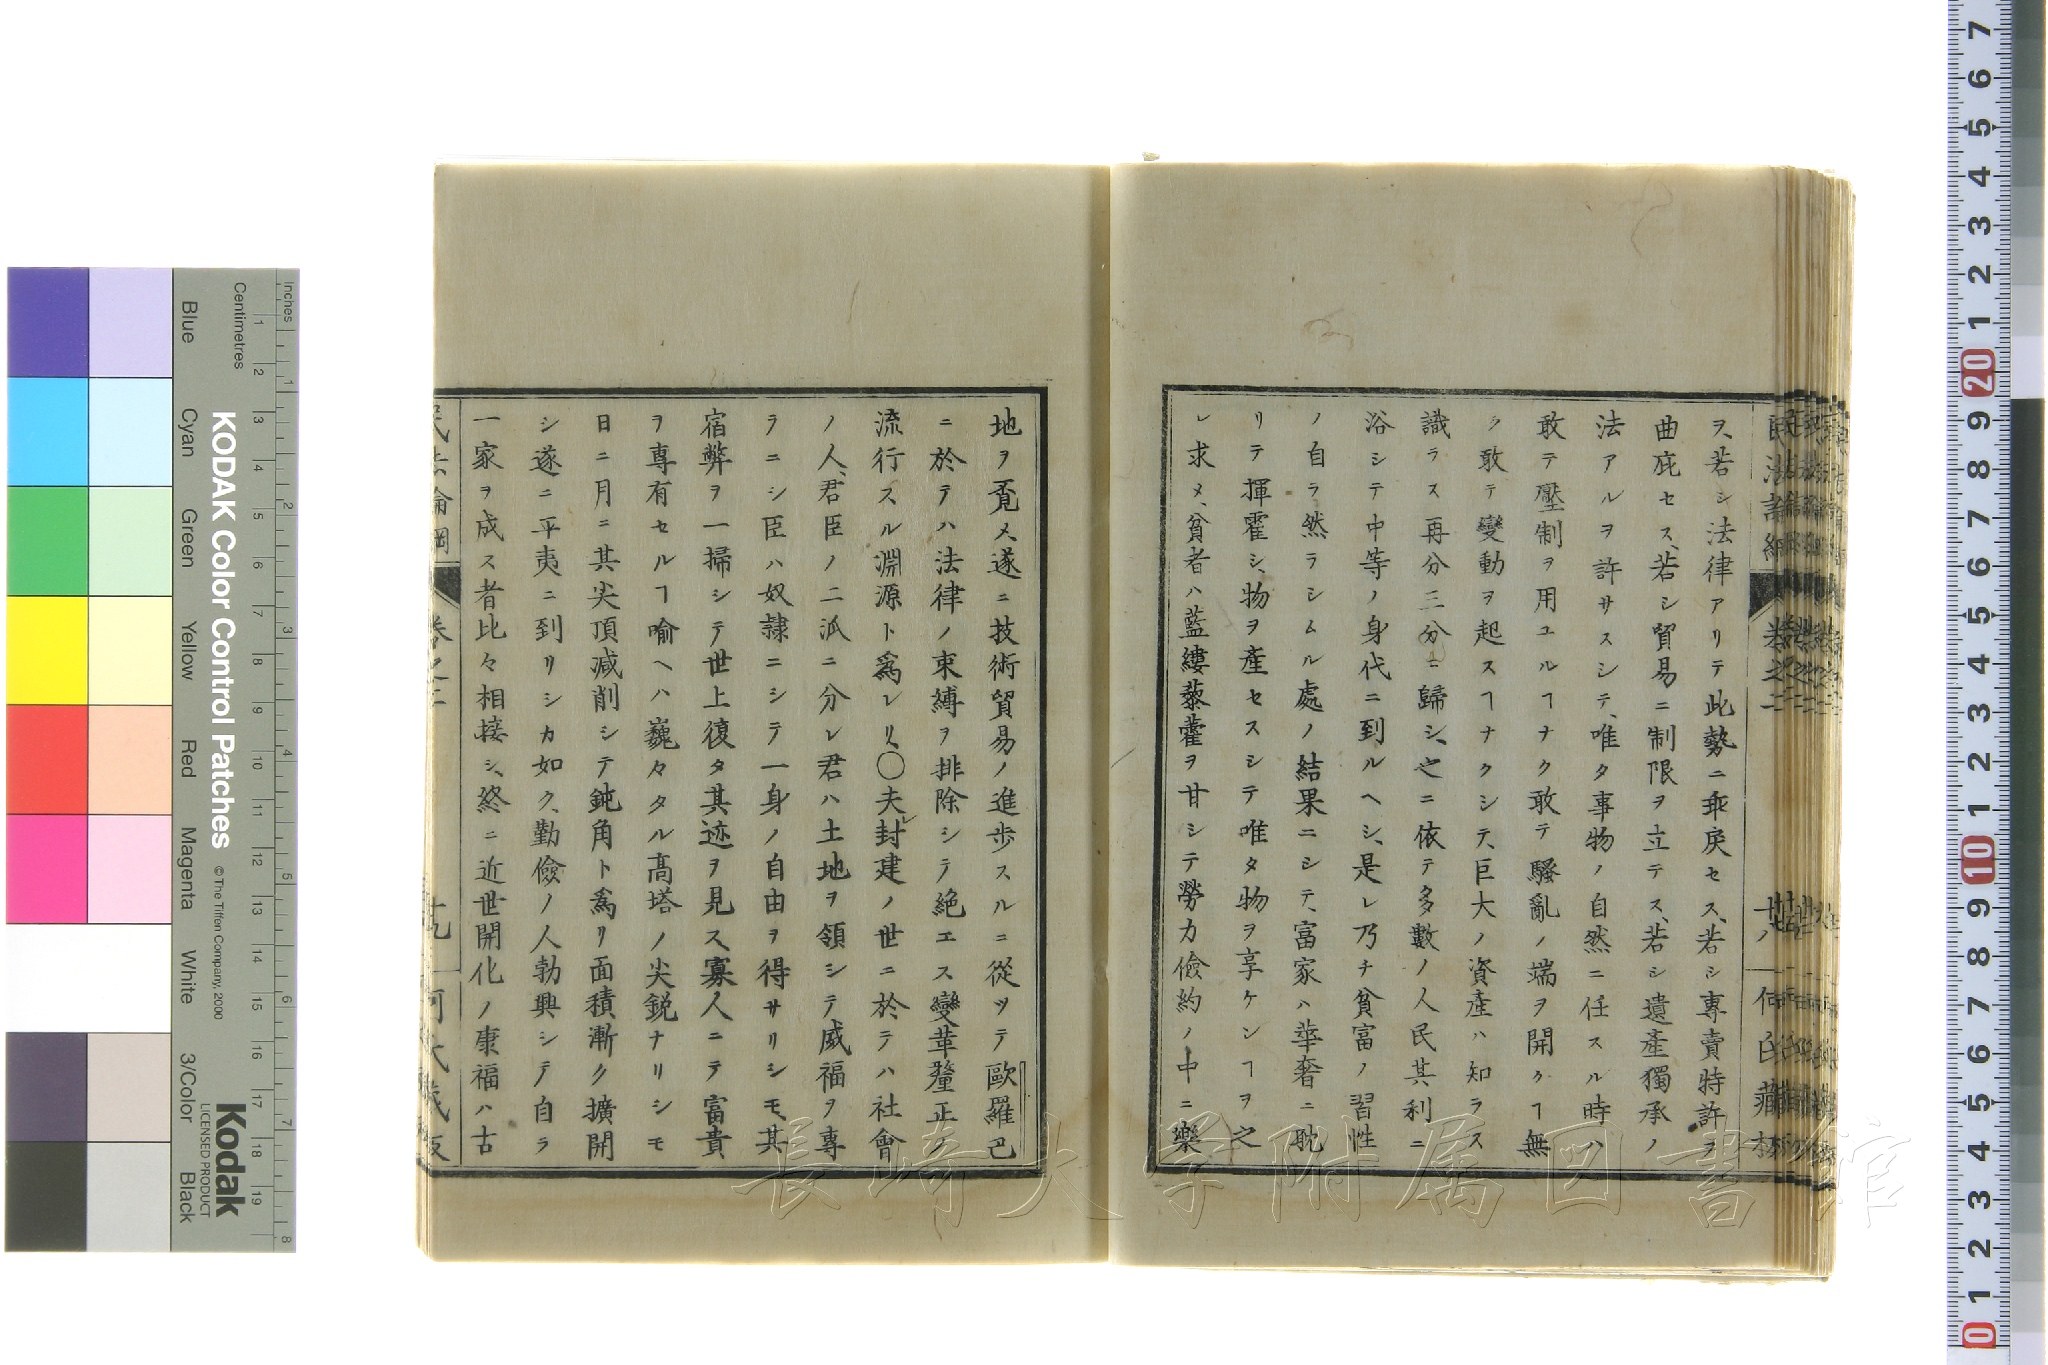 ヲ、若シ法律アリテ此勢ニ乖戾セス、若シ專賣特許ヲ
曲庇セス、若シ貿易ニ制限ヲ立テス、若シ遺產獨承ノ
法アルヲ許サスシテ、唯タ事物ノ自然ニ任スル時ハ
敢テ壓制ヲ用ユルヿナク敢テ騷亂ノ端ヲ開クヿ無
ク敢テ變動ヲ起スヿナクシテ、巨大ノ資產ハ知ラス
識ラス再分三分ニ歸シ、之ニ依テ多數ノ人民其利ニ
浴シテ中等ノ身代ニ到ルヘシ、是レ乃チ貧富ノ習性
ノ自ラ然ラシムル處ノ結果ニシテ、富家ハ華奢ニ耽
リテ揮霍シ、物ヲ產セスシテ唯タ物ヲ享ケンヿヲ之
レ求メ、貧者ハ藍縷藜藿ヲ甘シテ勞力儉約ノ中ニ樂
地ヲ覓メ、遂ニ技術貿易ノ進步スルニ從ツテ歐羅巴
ニ於テハ法律ノ束縛ヲ排除シテ絕エス變革釐正ノ
流行スル淵源ト爲レリ、○夫レ封建ノ世ニ於テハ社會
ノ人、君臣ノ二派ニ分レ君ハ土地ヲ領シテ威福ヲ專
ラニシ臣ハ奴隸ニシテ一身ノ自由ヲ得サリシモ、其
宿弊ヲ一掃シテ世上復タ其迹ヲ見ス、寡人ニテ富貴
ヲ專有セルヿ喻ヘハ巍々タル高塔ノ尖銳ナリシモ
日ニ月ニ其尖頂減削シテ鈍角ト爲リ面積漸ク擴開
シ遂ニ平夷ニ到リシカ如ク、勤儉ノ人勃興シテ自ラ
一家ヲ成ス者比々相接シ、終ニ近世開化ノ康福ハ古
民法論綱
卷之二
民法論綱
卷之二
何
KODAK Color Control Patches
© The Tiffen Company, 2000
Kodak
LICENSED PRODUCT
Inches
Centimetres
Blue
Cyan
Green
Yellow
Red
Magenta
White
3/Color
Black
長崎大学附属図書館